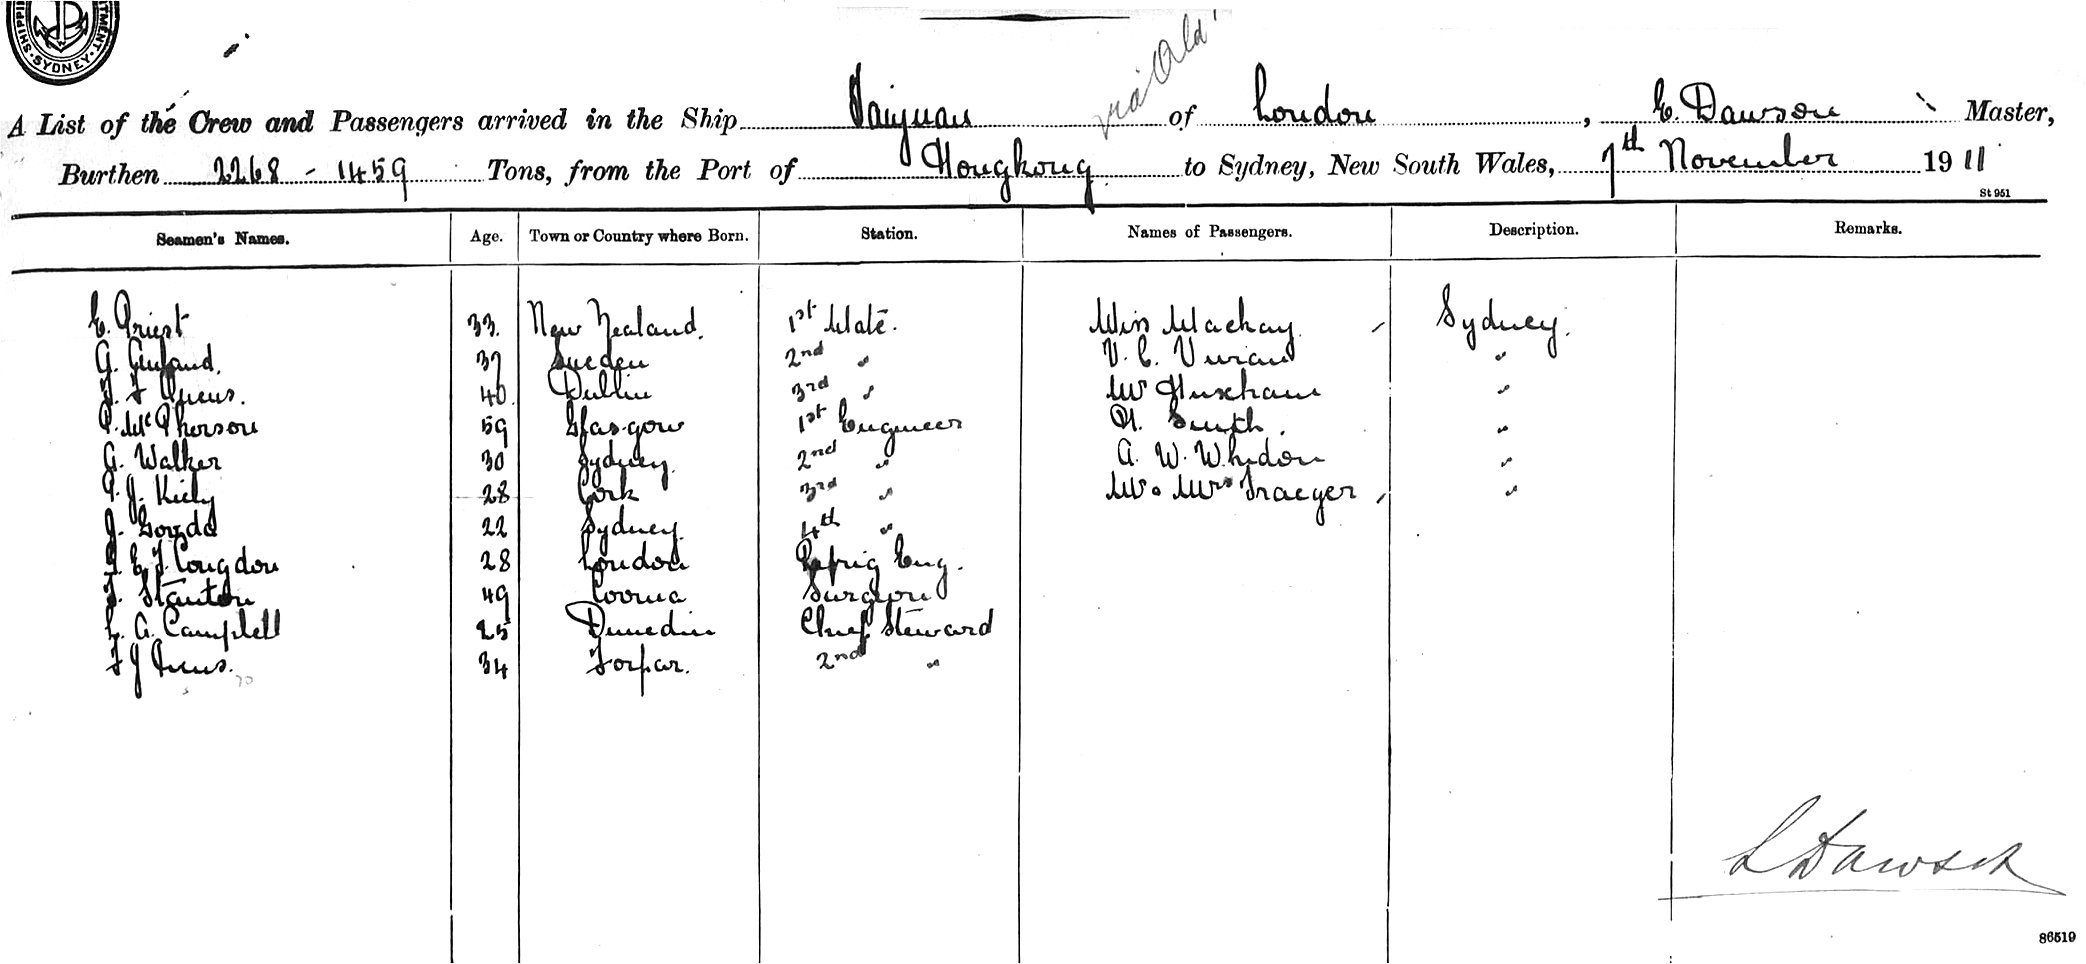 SHIPPIN TMENT. SYDNEY.
via Ald'
A List of the Crew and Passengers arrived in the Ship Taiyuan of London, E. Dawson Master,
Burthen 2268 - 1459 Tons, from the Port of Hongkong to Sydney, New South Wales, 7th November 1911
St 951
Seamen's Names. Age. Town or Country where Born. Station. Names of Passengers. Description. Remarks.
E. Priest 33. New Zealand. 1st Mate. Miss Mackay. Sydney.
G. 37 Sweden 2nd " V. C. Vivian "
40. Dublin 3rd " Mr Huxham "
P. McPherson 59 Glasgow 1st Engineer H. Smith. "
G. Walker 30 Sydney. 2nd " A. W. Whidon "
P. J. Kiely 28 Cork 3rd " Mr & Mrs Traeger "
J. Goudd 22 Sydney. 4th "
E. J. Congdon 28 London Refrig Eng.
J. Stanton 49 Cooma Surgeon
C. A. Campbell 25 Dunedin Chief Steward
34 Forfar. 2nd "
E Dawson
86519